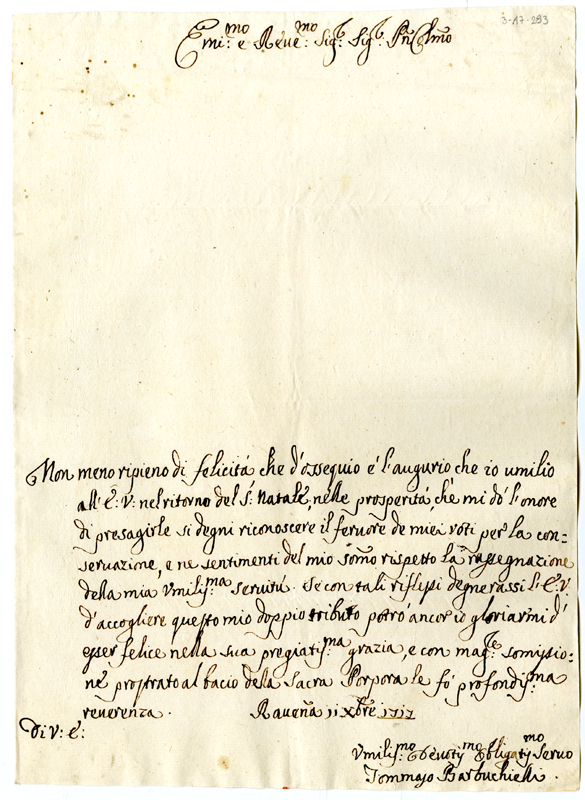 3-17-293
Em.mo e Reve.mo Sig.re Sig.re Pñ Colmo
Non meno ripieno di felicità che d'ossequio è l'augurio che io umilio
all'E: V: nel ritorno del S: Natale, nelle prosperità, che mi dò l'onore
di presagirle si degni riconoscere il feruore de miei voti per la con=
seruazione, e ne sentimenti del mio som̃o rispetto la rassegnazione
della mia Vmiliss:ma seruitù. Se con tali riflessi degnerassi l'E: V:
d'accogliere questo mio doppio tributo potrò ancor io gloriarmi d'
esser felice nella sua pregiatiss:ma grazia, e con mag:re somissio=
ne prostrato al bacio della Sacra Porpora le fò profondiss:ma
reverenza. Raueña 11 Xbre 1717
Di V: E:
Vmiliss:mo Deuotiss:mo Obligatiss:mo Seruo
Tommaso Barbuchielli.